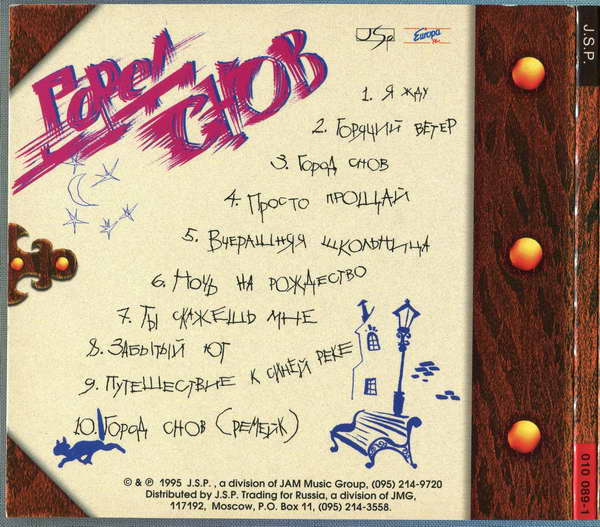 Город
снов
J.S.P.
Europa
1. Я жду
2. Горячий ветер
3. Город снов
4. Просто прощай
5. Вчерашняя школьница
6. Ночь на рождество
7. Ты скажешь мне
8. Забытый юг
9. Путешествие к синей реке
10. Город снов (ремейк)
© & ℗ 1995 J.S.P., a division of JAM Music Group, (095) 214-9720
Distributed by J.S.P. Trading for Russia, a division of JMG,
117192, Moscow, P.O. Box 11, (095) 214-3558.
J.S.P.
010 089-1